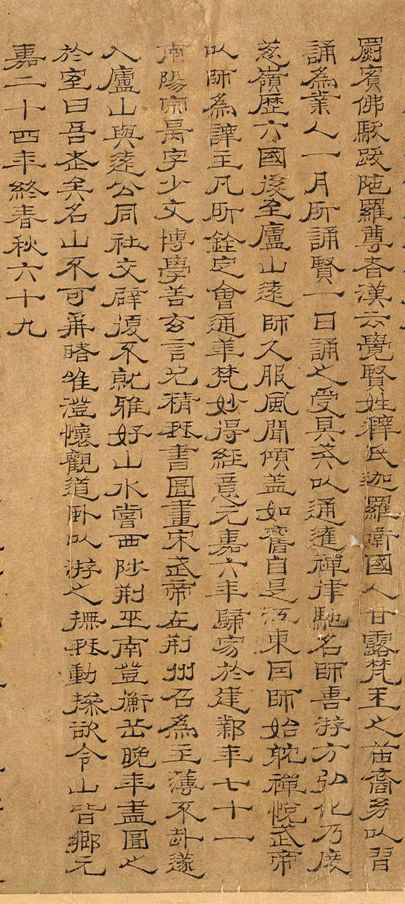 罽賓佛馱跋陁羅尊者漢云覺賢姓釋氏迦羅衛國人甘露梵王之苗裔幼以習
誦為業人一月所誦賢一日誦之受具夾以通達禪律馳名師喜游方弘化乃度
葱嶺歷六國後至廬山遠師久服風聞傾盖如舊自是江東因師始躭禪悅武帝
以師為譯主凡所銓定會通華梵妙得經意元嘉六年歸寂於建鄴年七十一
南陽宗昺字少文博學善玄言尤精琴書圖畫宋武帝在荆州召為主薄不就遂
入廬山與遠公同社文辟復不就雅好山水嘗西陟荆巫南登衡岳晚年盡圖之
於室曰吾老矣名山不可再睹唯澄懷觀道臥以游之撫琴動操欲令山皆響元
嘉二十四年終春秋六十九